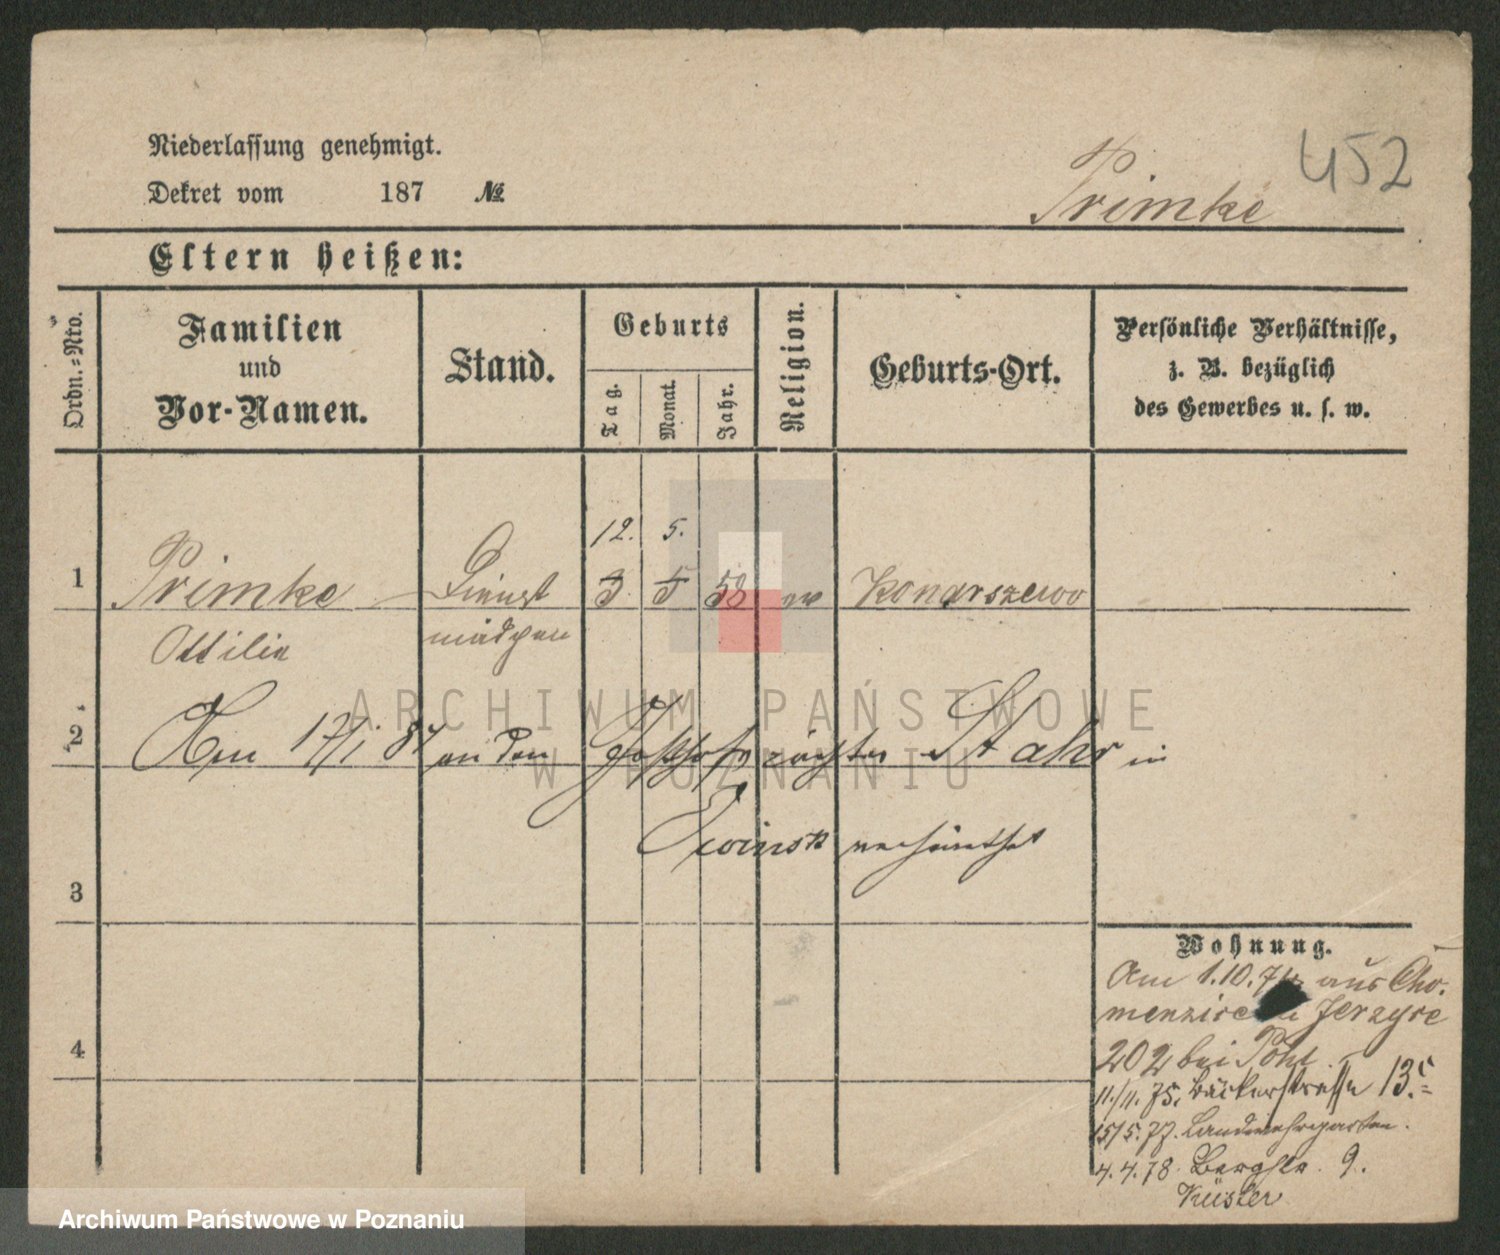 452
Niederlassung genehmigt.
Dekret vom 187 №
Primke
Eltern heißen:
Ordn.-Nro.
Familien und Vor-Namen.
Stand.
Geburts
Tag.
Monat.
Jahr.
Religion.
Geburts-Ort.
Persönliche Verhältnisse,
z. B. bezüglich
des Gewerbes u. s. w.
12. 5.
1 Primke Dienst 3 5 58 ev Konarszewo
Ottilie mädchen
ARCHIWUM PAŃSTWOWE
W POZNANIU
2 Am 17/1 87 an den Stahr in
verheirathet
3
4
Wohnung.
Am 1.10. aus Cho-
Jerzyce
202 bei Pohl
11./11. 75. Bäckerstrasse 13.
15/5. 77. Landwehrgarten.
4.4.78. Bergstr. 9.
Küster
Archiwum Państwowe w Poznaniu